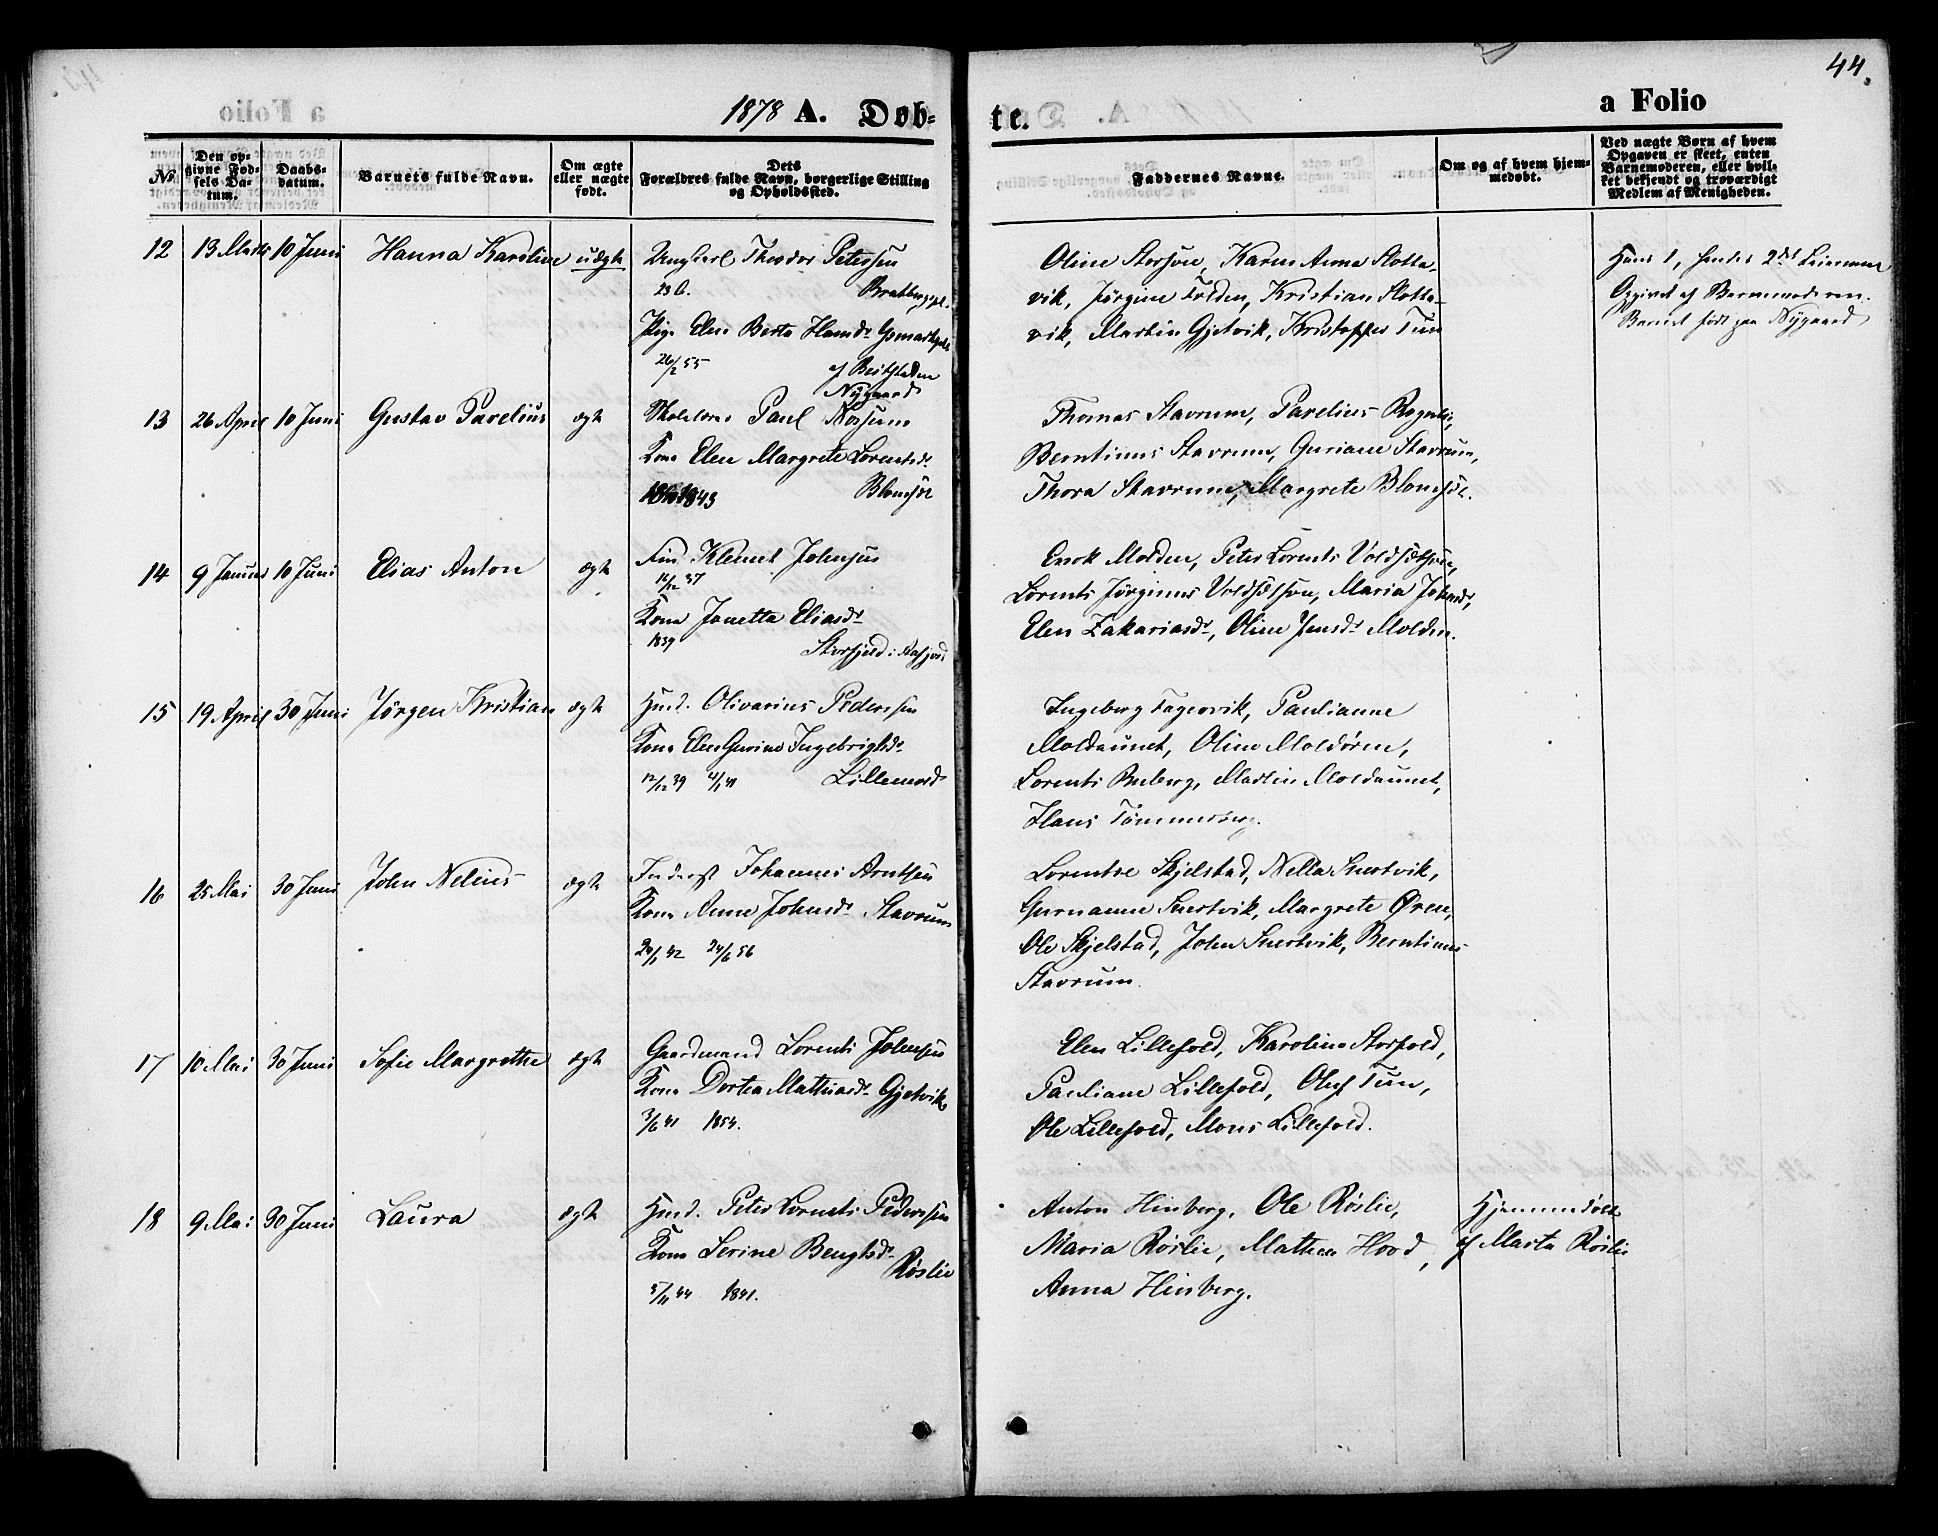 44.
1878 A. Døb-
te.
a Folio
No
Den op-
givne Fød-
sels Da-
tum.
Daabs-
datum.
Barnets fulde Navn.
Om ægte
eller uægte
født.
Dets
Forældres fulde Navn, borgerlige Stilling
og Opholdssted.
Faddernes Navne.
Om og af hvem hjem-
medøbt.
Ved uægte Børn af hvem
Opgaven er skeet, enten
Barnemoderen, eller hvil-
ket bekjendt og troværdigt
Medlem af Menigheden.
12 13 Marts 10 Juni Hanna Karoline uægte
Ungkarl Theodor Petersen
Pige Elen Berta
26/2 55
Nygaard
Oline Storsøre, Karen Anna Slotta-
vik, Jørgine Folden, Kristian Slotta-
vik, Martin Gjetvik, Kristoffer Tun
Hans 1, hendes 2det Leiermaal
Opgivet af Barnemoderen.
Barnet født paa Nygaard
13 26 April 10 Juni Gustav Parelius ægte
Paul
Kone Elen Margrete Lorentsdr
1843
Thomas Stavrum, Parelius
Berntinus Stavrum, Guriane Stavrum,
Thora Stavrum, Margrete
14 9 Januar 10 Juni Elias Anton ægte
Fin Klemet Johnsen
12 37
Kone Janetta Eliasdr
1839
Storfjeld i Aafjord
Enok Molden, Peter Lorents
Lorents Jørginus Maria
Elen Zakariasdr, Oline Jensdr Molden.
15 19 April 30 Juni Jørgen Kristian ægte
Husmd. Olivarius Pedersen
Kone Elen Gurine Ingebrigtsdr
12/12 39 4/1 41
Ingeborg Fagervik, Paulianne
Moldaunet, Oline Moldøren,
Lorents Martin Moldaunet,
Hans
16 25 Mai 30 Juni John Nelius ægte
Inderst Johannes Arntsen
Kone Anne Johnsdr Stavrum
20/1 42 24/6 56
Lorentse Skjelstad, Nella Snertvik,
Gurnanna Snertvik, Margrete Øren,
Ole Skjelstad, John Snertvik, Berntinus
Stavrum.
17 10 Mai 30 Juni Sofie Margrethe ægte
Gaardmand Lorents Johnsen
Kone Dortea Mathiasdr Gjetvik
3/6 41 1854.
Elen Lillefold, Karoline Storfold,
Pauliane Lillefold, Oluf Tun,
Ole Lillefold, Mons Lillefold.
18 9 Mai 30 Juni Laura ægte
Husmd. Peter Lorents Pedersen
Kone Serine Bengtsdr
Røslie
5/11 44 1841.
Anton Hinberg, Ole Røslie,
Maria Røslie, Mathea Hood,
Anna Hinberg.
Hjemmedøbt
af Marta Røslie